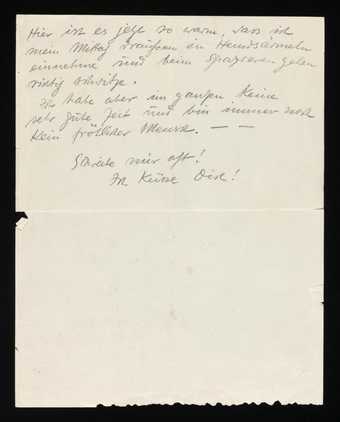 Hier ist es jetzt so warm, dass ich
mein Mittag draußen in Hemdsärmeln
einnehme und beim Spazierengehen
richtig schwitze.
Ich habe aber im ganzen keine
sehr gute Zeit und bin immer noch
kein fröhlicher Mensch. — —
Schreibe mir oft!
Ich Küsse Dich!